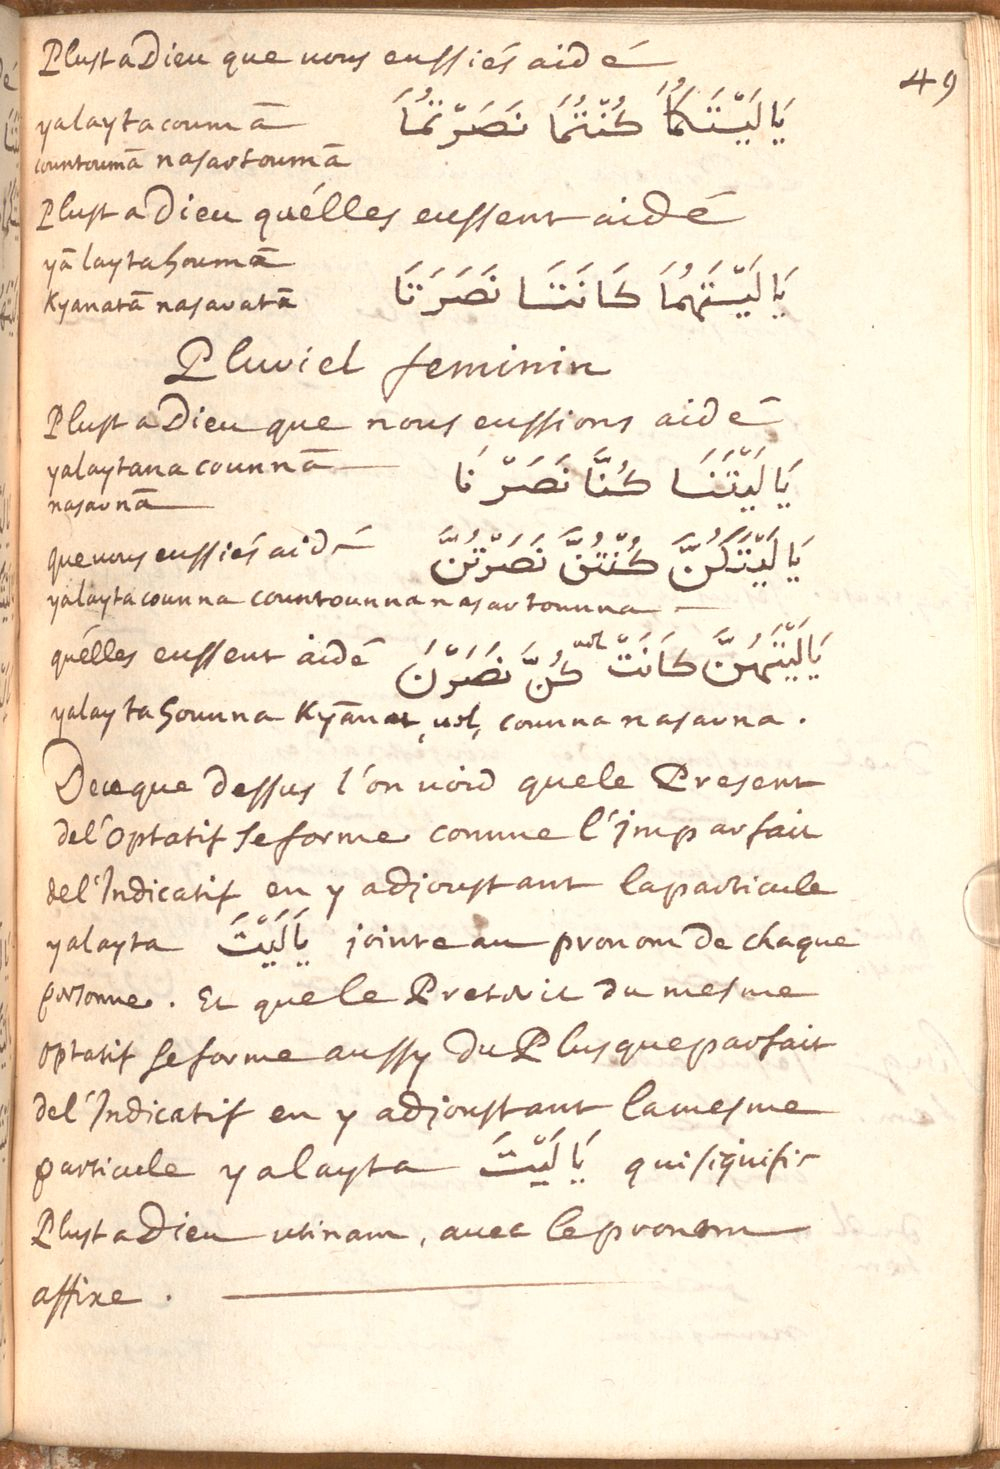 49
Plust a Dieu que vous eussiés aidé
yalaytacoumā يَا لَيْتَكُمَا كُنْتُمَا نَصَرْتُمَا
countoumā nasartoumā
Plust a Dieu quélles eussent aidé
yā laytahoumā
Kyanatā nasaratā يَا لَيْتَهُمَا كَانَتَا نَصَرَتَا
Pluriel feminin
Plust a Dieu que nous eussions aidé
yalaytana counnā يَا لَيْتَنَا كُنَّا نَصَرْنَا
nasarnā
que vous eussiés aidé يَا لَيْتَكُنَّ كُنْتُنَّ نَصَرْتُنَّ
yalaytacounna countounna nasartounna
quélles eussent aidé يَا لَيْتَهُنَّ كَانَتْ vel كُنَّ نَصَرْنَ
yalaytahounna Kyānat, vel, counna nasarna.
De ce que dessus l'on void que le Present
de l'Optatif se forme comme l'Imparfait
de l'Indicatif en y adjoustant la particule
yalayta يَا لَيْتَ jointe au pronom de chaque
personne. Et que le Preterit du mesme
optatif se forme aussy du Plusqueparfait
de l'Indicatif en y adjoustant la mesme
particule yalayta يَا لَيْتَ qui signifie
Plust a Dieu utinam, avec le pronom
affixe.